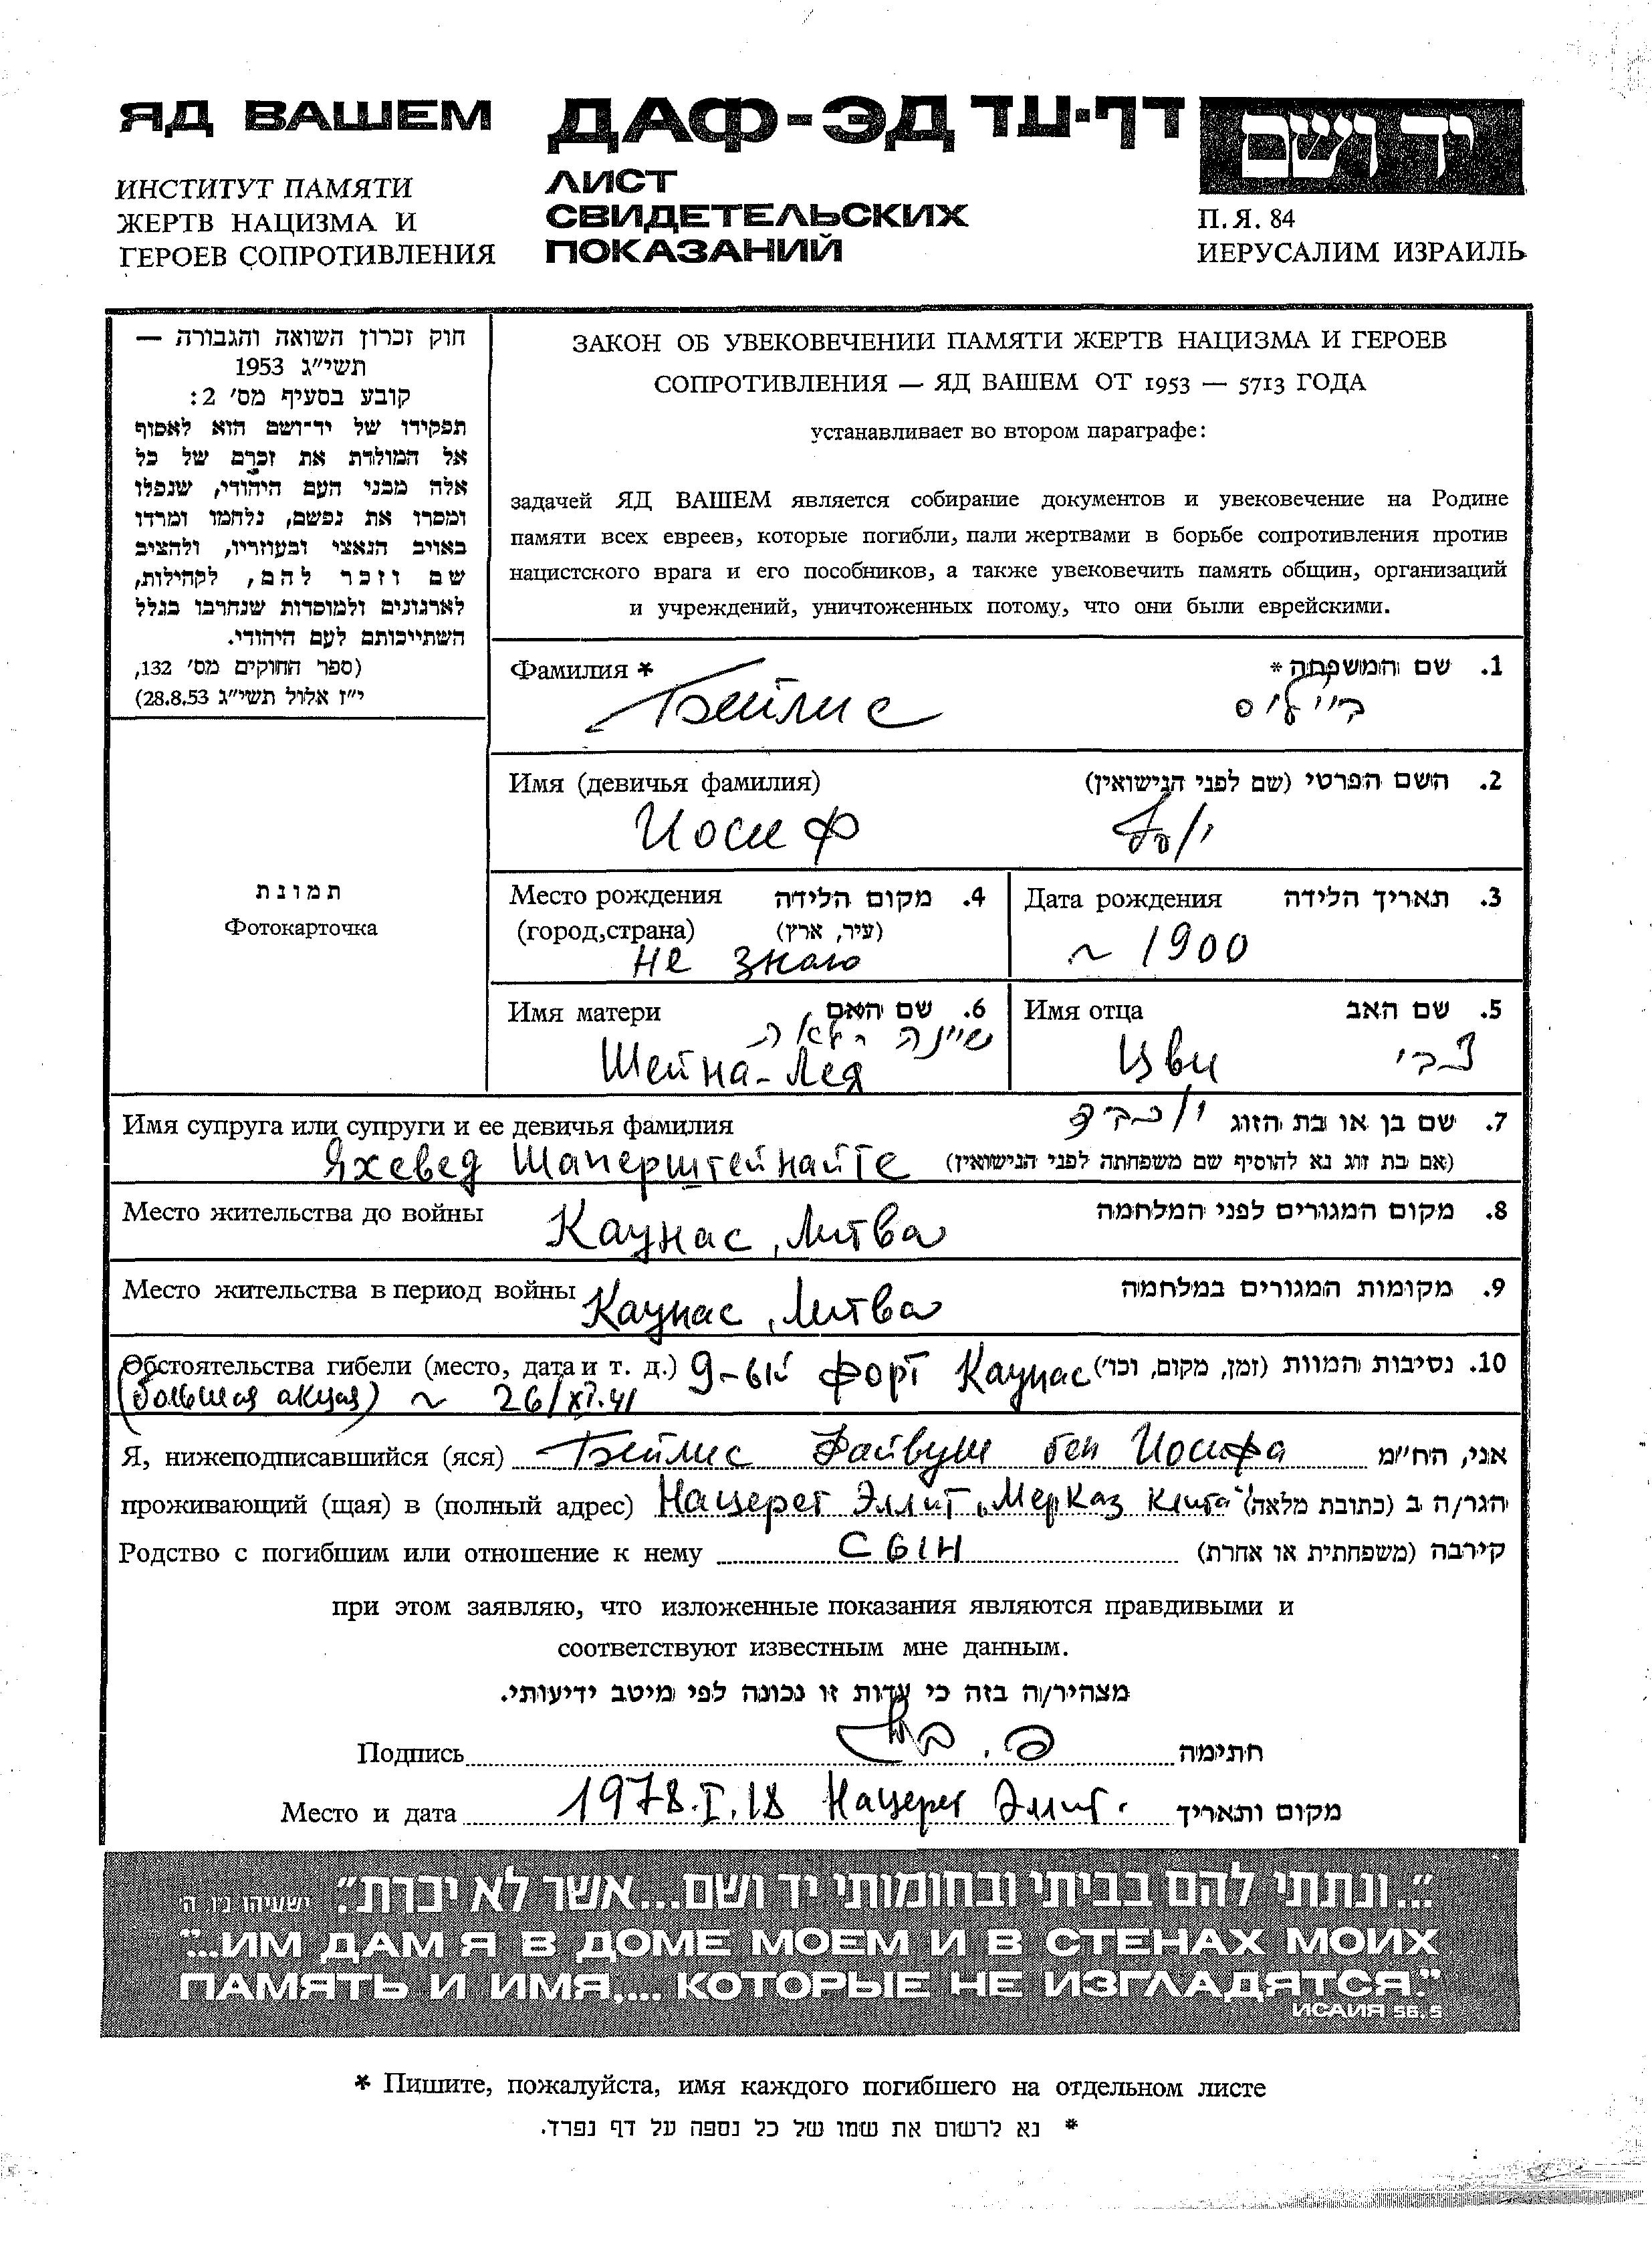 ЯД ВАШЕМ
ИНСТИТУТ ПАМЯТИ
ЖЕРТВ НАЦИЗМА И
ГЕРОЕВ СОПРОТИВЛЕНИЯ
ДАФ-ЭД דף-עד
ЛИСТ
СВИДЕТЕЛЬСКИХ
ПОКАЗАНИЙ
יד ושם
П. Я. 84
ИЕРУСАЛИМ ИЗРАИЛЬ
חוק זכרון השואה והגבורה —
תשי"ג 1953
קובע בסעיף מס' 2:
תפקידו של יד־ושם הוא לאסוף
אל המולדת את זכרם של כל
אלה מבני העם היהודי, שנפלו
ומסרו את נפשם, נלחמו ומרדו
באויב הנאצי ובעוזריו, ולהציב
שם וזכר להם, לקהילות,
לארגונים ולמוסדות שנחרבו בגלל
השתייכותם לעם היהודי.
(ספר החוקים מס' 132,
י"ז אלול תשי"ג 28.8.53)
ЗАКОН ОБ УВЕКОВЕЧЕНИИ ПАМЯТИ ЖЕРТВ НАЦИЗМА И ГЕРОЕВ
СОПРОТИВЛЕНИЯ — ЯД ВАШЕМ ОТ 1953 — 5713 ГОДА
устанавливает во втором параграфе:
задачей ЯД ВАШЕМ является собирание документов и увековечение на Родине
памяти всех евреев, которые погибли, пали жертвами в борьбе сопротивления против
нацистского врага и его пособников, а также увековечить память общин, организаций
и учреждений, уничтоженных потому, что они были еврейскими.
Фамилия * 1. שם המשפחה *
Бейлис בייליס
Имя (девичья фамилия) 2. השם הפרטי (שם לפני הנישואין)
Иосиф יוסף
תמונת
Фотокарточка
Место рождения 4. מקום הלידה
(город,страна) (עיר, ארץ)
не знаю
Дата рождения 3. תאריך הלידה
~ 1900
Имя матери 6. שם האם
שיינה
Шейна-Лея
Имя отца 5. שם האב
Цви צבי
Имя супруга или супруги и ее девичья фамилия 7. שם בן או בת הזוג יוכבד
Яхевед Шаперштейнайте (אם בת זוג נא להוסיף שם משפחתה לפני הנישואין)
Место жительства до войны Каунас, Литва 8. מקום המגורים לפני המלחמה
Место жительства в период войны Каунас, Литва 9. מקומות המגורים במלחמה
Обстоятельства гибели (место, дата и т. д.) 9-ый форт Каунас 10. נסיבות המוות (זמן, מקום, וכו')
(большая акция) ~ 26/XI.41
Я, нижеподписавшийся (яся) Бейлис Файвуш бен Иосифа אני, הח"מ
проживающий (щая) в (полный адрес) Нацерет Эллит, "Мерказ Клита" הגר/ה ב (כתובת מלאה)
Родство с погибшим или отношение к нему сын קירבה (משפחתית או אחרת)
при этом заявляю, что изложенные показания являются правдивыми и
соответствуют известным мне данным.
מצהיר/ה בזה כי עדות זו נכונה לפי מיטב ידיעותי.
Подпись חתימה
Место и дата 1978.I.18 Нацерет Эллит. מקום ותאריך
"...ונתתי להם בביתי ובחומותי יד ושם...אשר לא יכרת". ישעיהו נ"ו ה'
"...ИМ ДАМ Я В ДОМЕ МОЕМ И В СТЕНАХ МОИХ
ПАМЯТЬ И ИМЯ,... КОТОРЫЕ НЕ ИЗГЛАДЯТСЯ."
ИСАИЯ 56.5
* Пишите, пожалуйста, имя каждого погибшего на отдельном листе
* נא לרשום את שמו של כל נספה על דף נפרד.